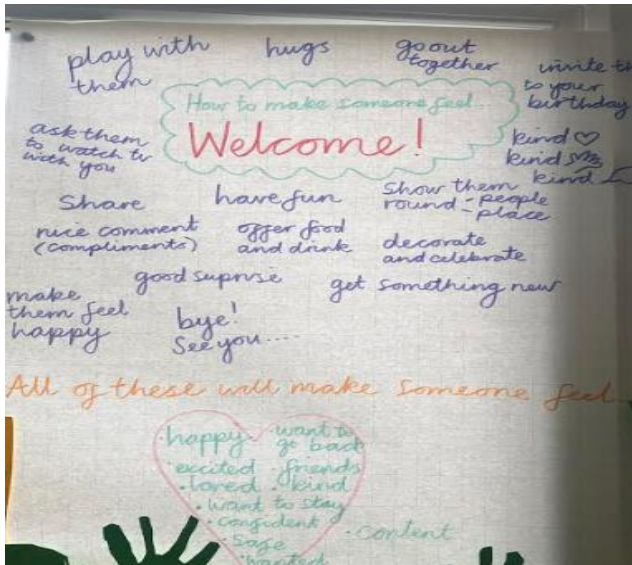 play with
them
hugs
go out
together
invite th
to your
birthday
How to make someone feel
Welcome!
ask them
to watch tv
with you
kind
kind
kind
Share
have fun
Show them
round - people
- place
nice comment
(compliments)
offer food
and drink
decorate
and celebrate
good suprise
get something new
make
them feel
happy
bye!
See you....
All of these will make someone feel
• happy
• want to
go back
• excited
• friends
• loved
• kind
• want to stay
• confident
• content
• safe
• wanted